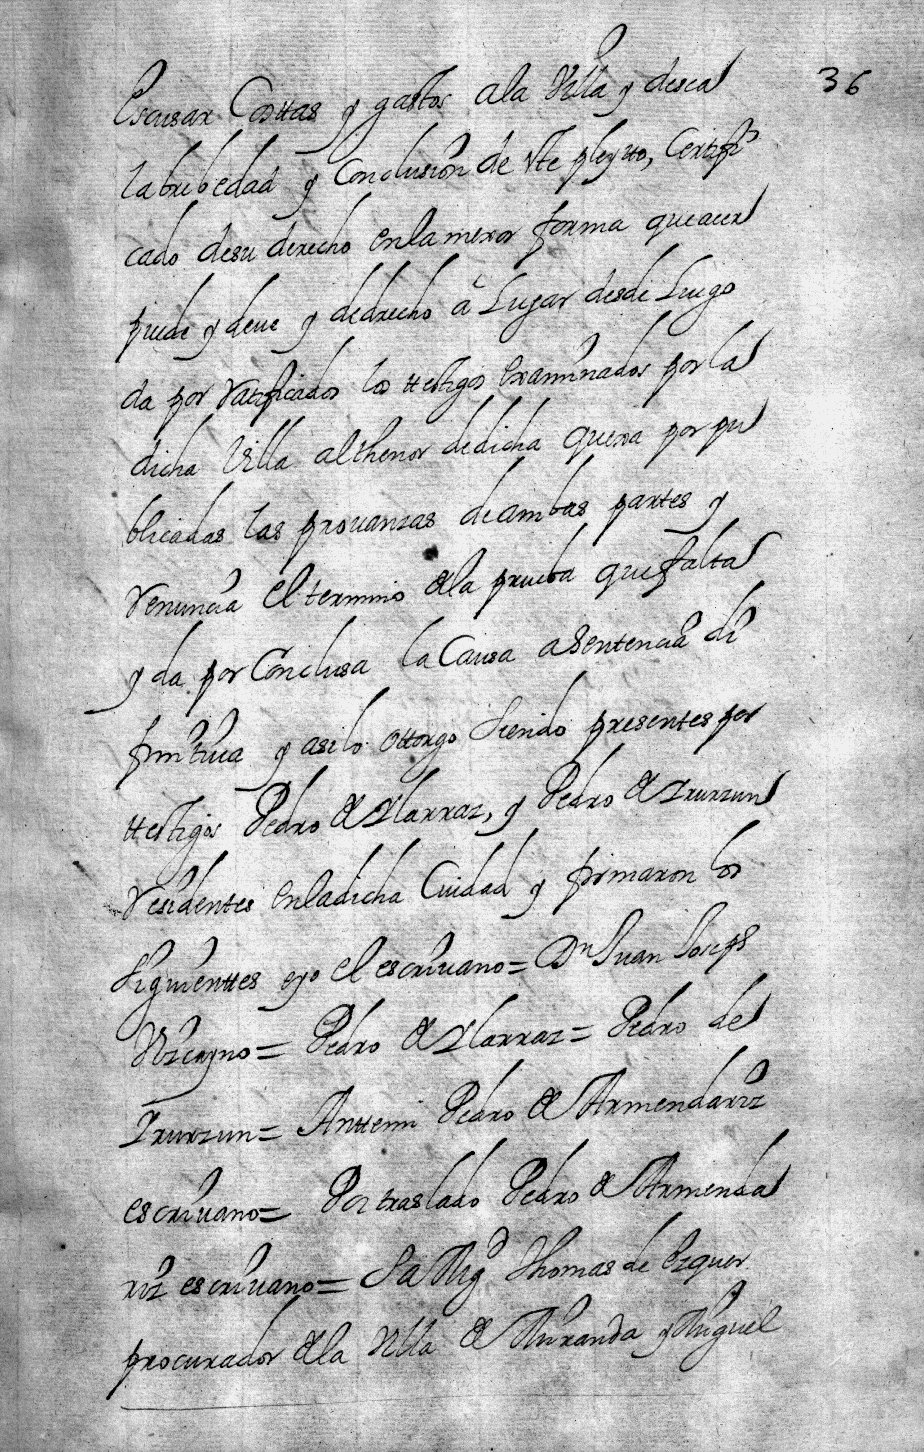 36
Escusar Costtas y gastos ala Villa y desea
labrebedad y Conclusion de este pleytto, Certifi
cado desu derecho enlamexor forma queacer
puede y deue y dedrecho â Lugar desde Luego
da por Ratificados los ttestigos examinados por la
dicha Villa althenor dedicha quexa por pu
blicadas las prouanzas deambas partes y
Renuncia El termino dela prueba quefalta
y da por Conclusa la Causa asentencia di
finitiua y asilo ottorgo siendo presentes por
ttestigos Pedro de Ylarraz, y Pedro de Yrurzun
Residentes enladicha Ciudad y firmaron los
siguienttes eyo el escriuano = Dn Juan Joseph
Vizcayno = Pedro de Ylarraz = Pedro de
Yrurzun = Anttemi Pedro de Armendariz
escriuano = Por traslado Pedro de Armenda
riz escriuano = Thomas de Ezquer
procurador dela Villa de Miranda y Miguel